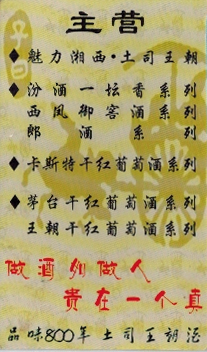 主营
魅力湘西·土司王朝
汾酒一坛香系列
西凤御窖酒系列
郎酒系列
卡斯特干红葡萄酒系列
茅台干红葡萄酒系列
王朝干红葡萄酒系列
做酒如做人
贵在一个真
品味800年土司王朝酒